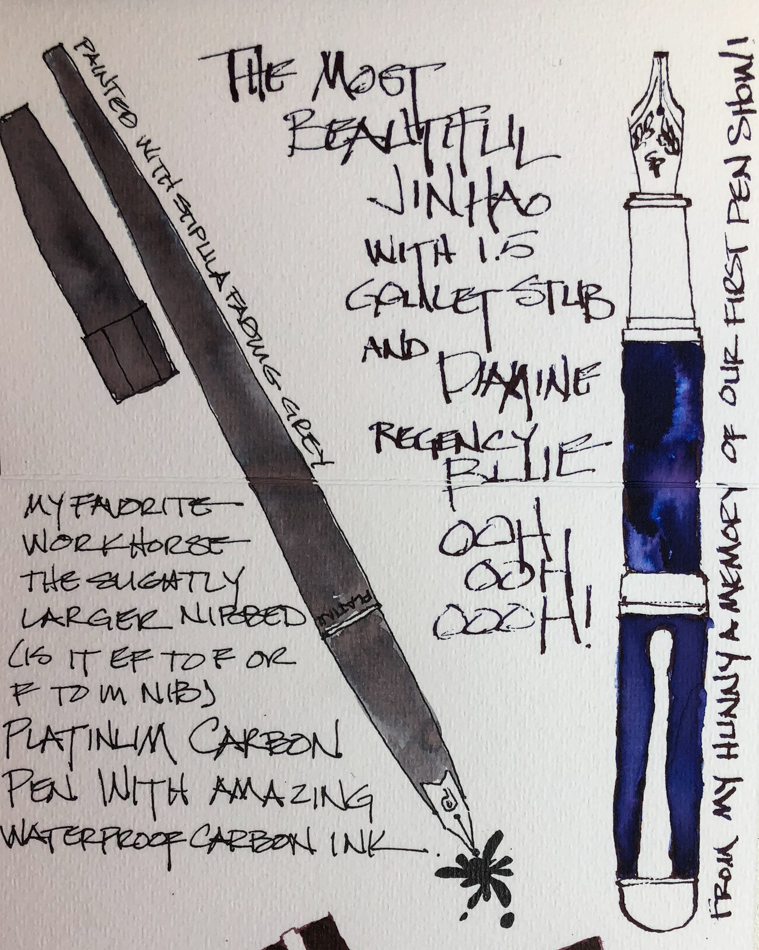 PAINTED WITH STIPULA FADING GREY
THE MOST
BEAUTIFUL
JINHAO
WITH 1.5
GOULET STUB
AND
DIAMINE
REGENCY
BLUE
OOH
OOH
OOOH!
FROM MY HUNNY A MEMORY OF OUR FIRST PEN SHOW!
MY FAVORITE
WORKHORSE
THE SLIGHTLY
LARGER NIBBED
(IS IT EF TO F OR
F TO M NIB)
PLATINUM CARBON
PEN WITH AMAZING
WATERPROOF CARBON INK